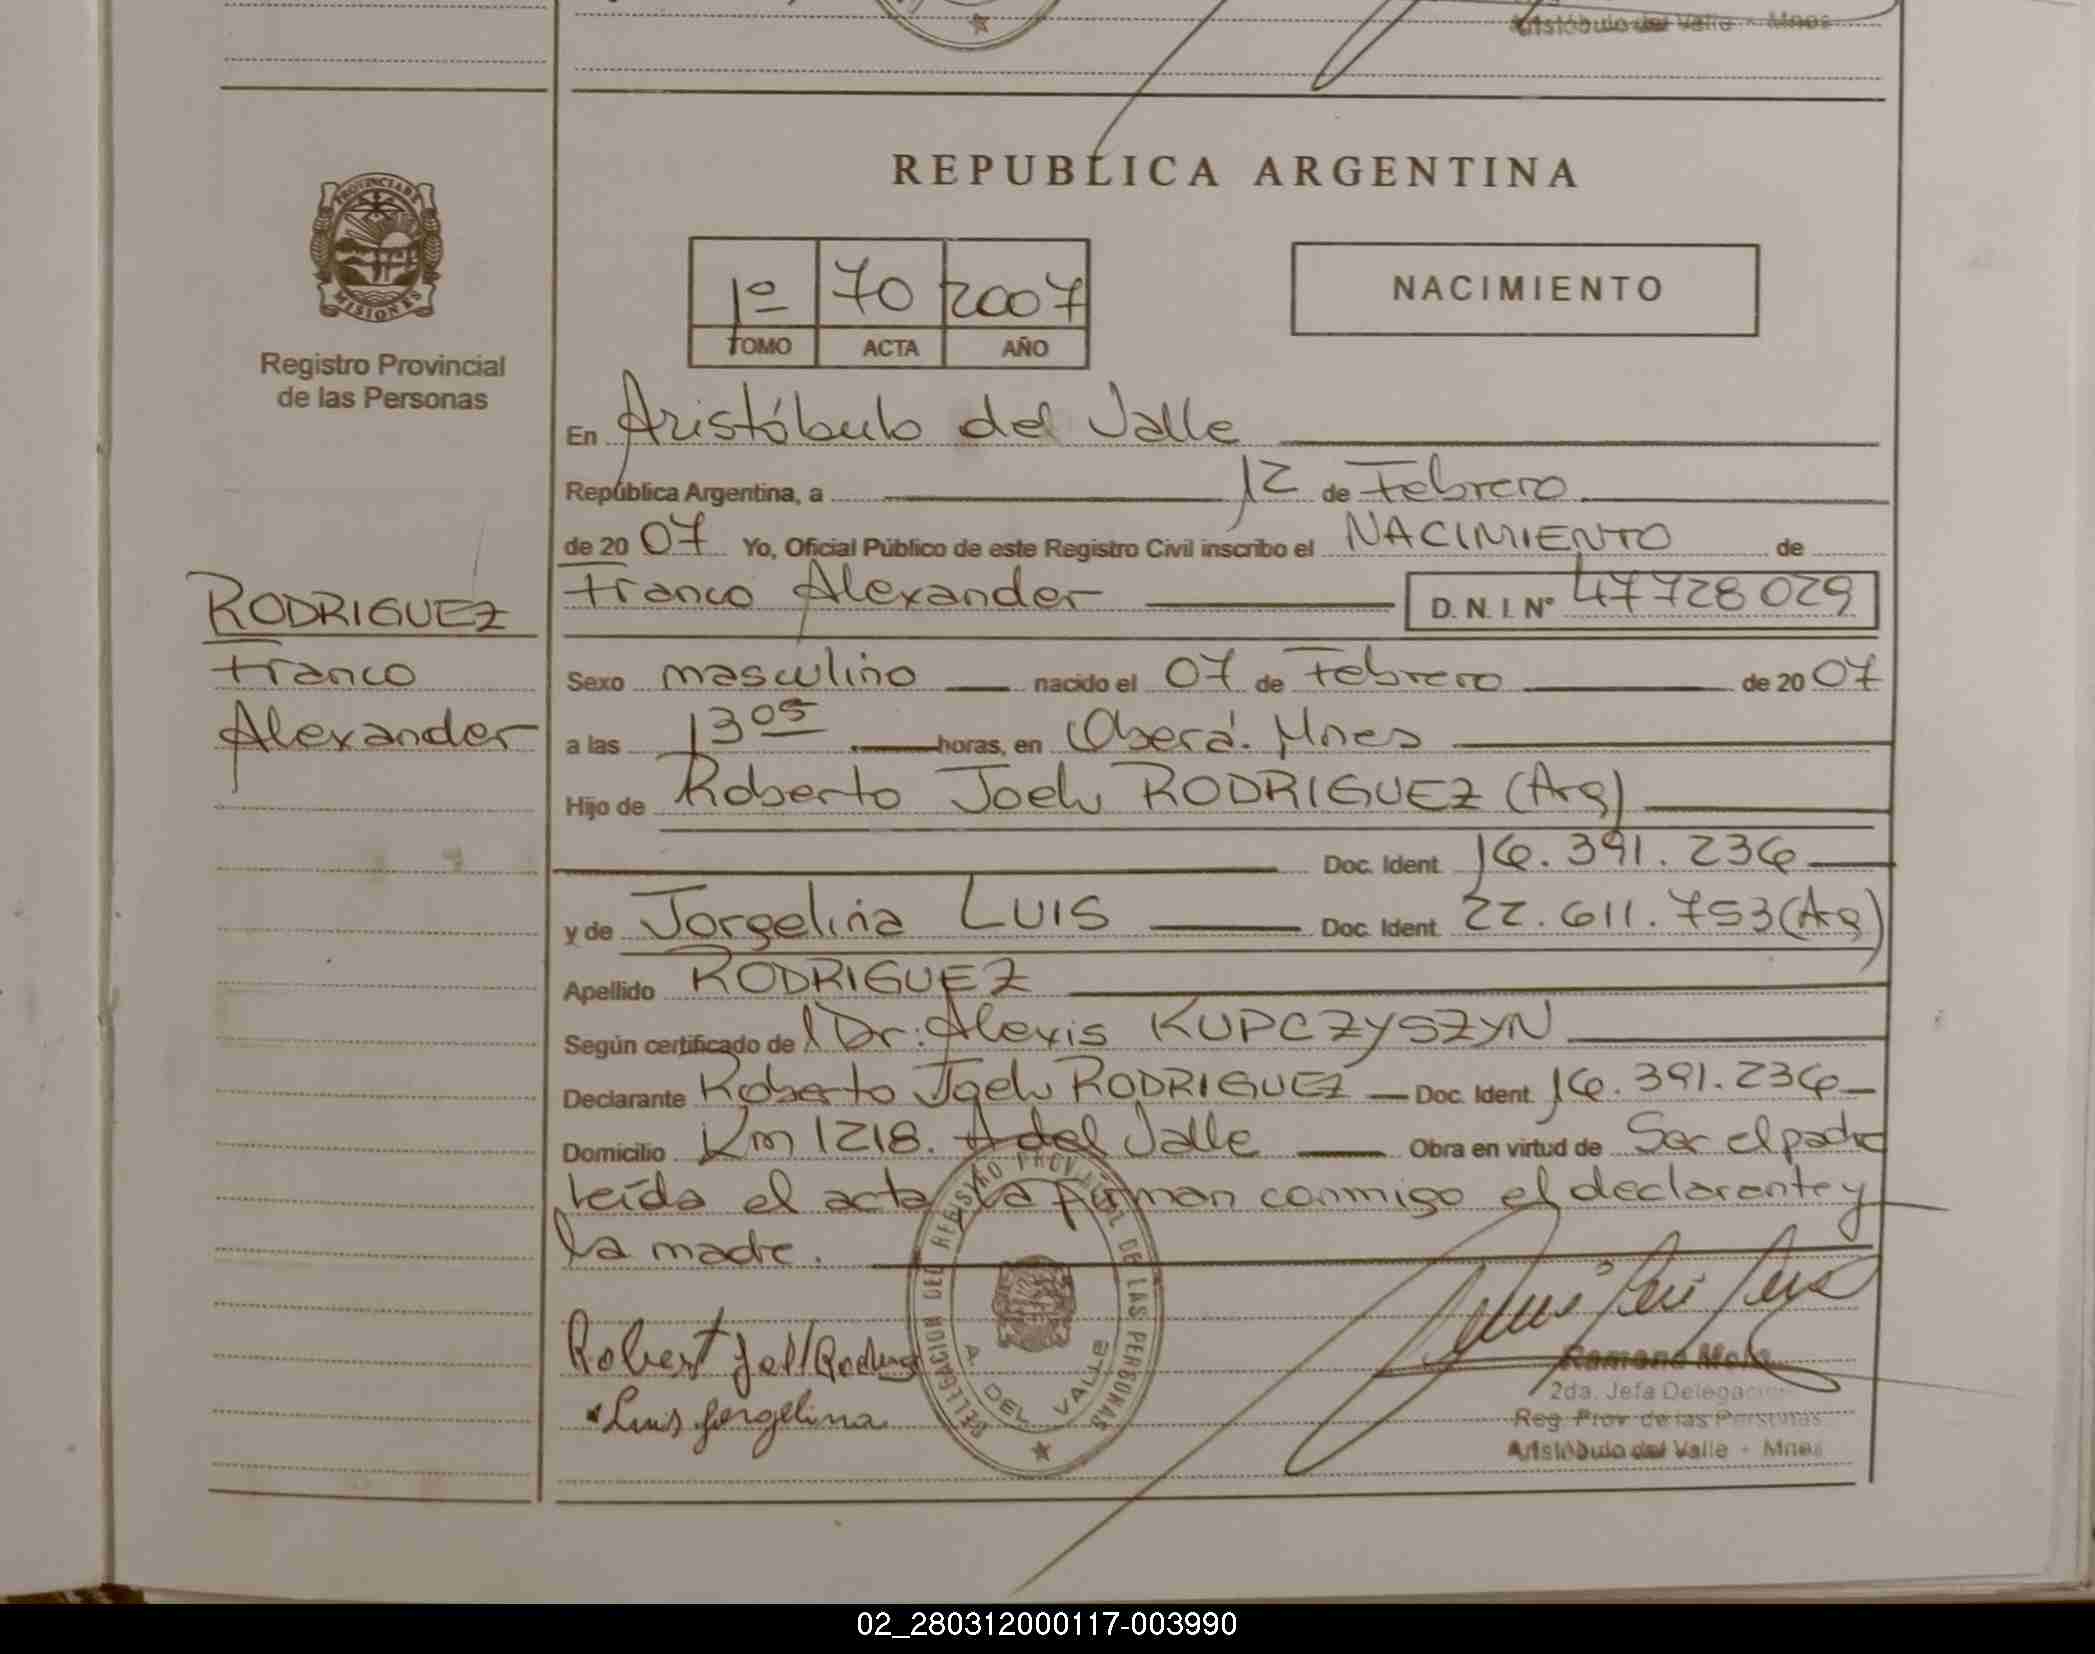 Aristóbulo del Valle - Mnes
REPUBLICA ARGENTINA
PROVINCIA DE
MISIONES
Registro Provincial
de las Personas
1º 70 2007
TOMO ACTA AÑO
NACIMIENTO
En Aristóbulo del Valle
República Argentina, a 12 de Febrero
de 20 07 Yo, Oficial Público de este Registro Civil inscribo el NACIMIENTO de
Franco Alexander D. N. I. Nº 47728029
RODRIGUEZ
Franco
Alexander
Sexo masculino nacido el 07 de Febrero de 20 07
a las 13 05 horas, en Oberá. Mnes
Hijo de Roberto Joel RODRIGUEZ (Arg)
Doc. Ident. 16.391.236
y de Jorgelina LUIS Doc. Ident. 22.611.753 (Arg)
Apellido RODRIGUEZ
Según certificado de Dr. Alexis KUPCZYSZYN
Declarante Roberto Joel RODRIGUEZ Doc. Ident. 16.391.236
Domicilio Km 1218. A del Valle Obra en virtud de Ser el padre
leída el acta la firman conmigo el declarante y
la madre.
DELEGACION DEL REGISTRO PROVINCIAL DE LAS PERSONAS
A. DEL VALLE
Robert Joel Rodrig
Luis Jorgelina
Ramona
2da. Jefa Delegación
Reg. Prov. de las Personas
Aristóbulo del Valle - Mnes
02_280312000117-003990